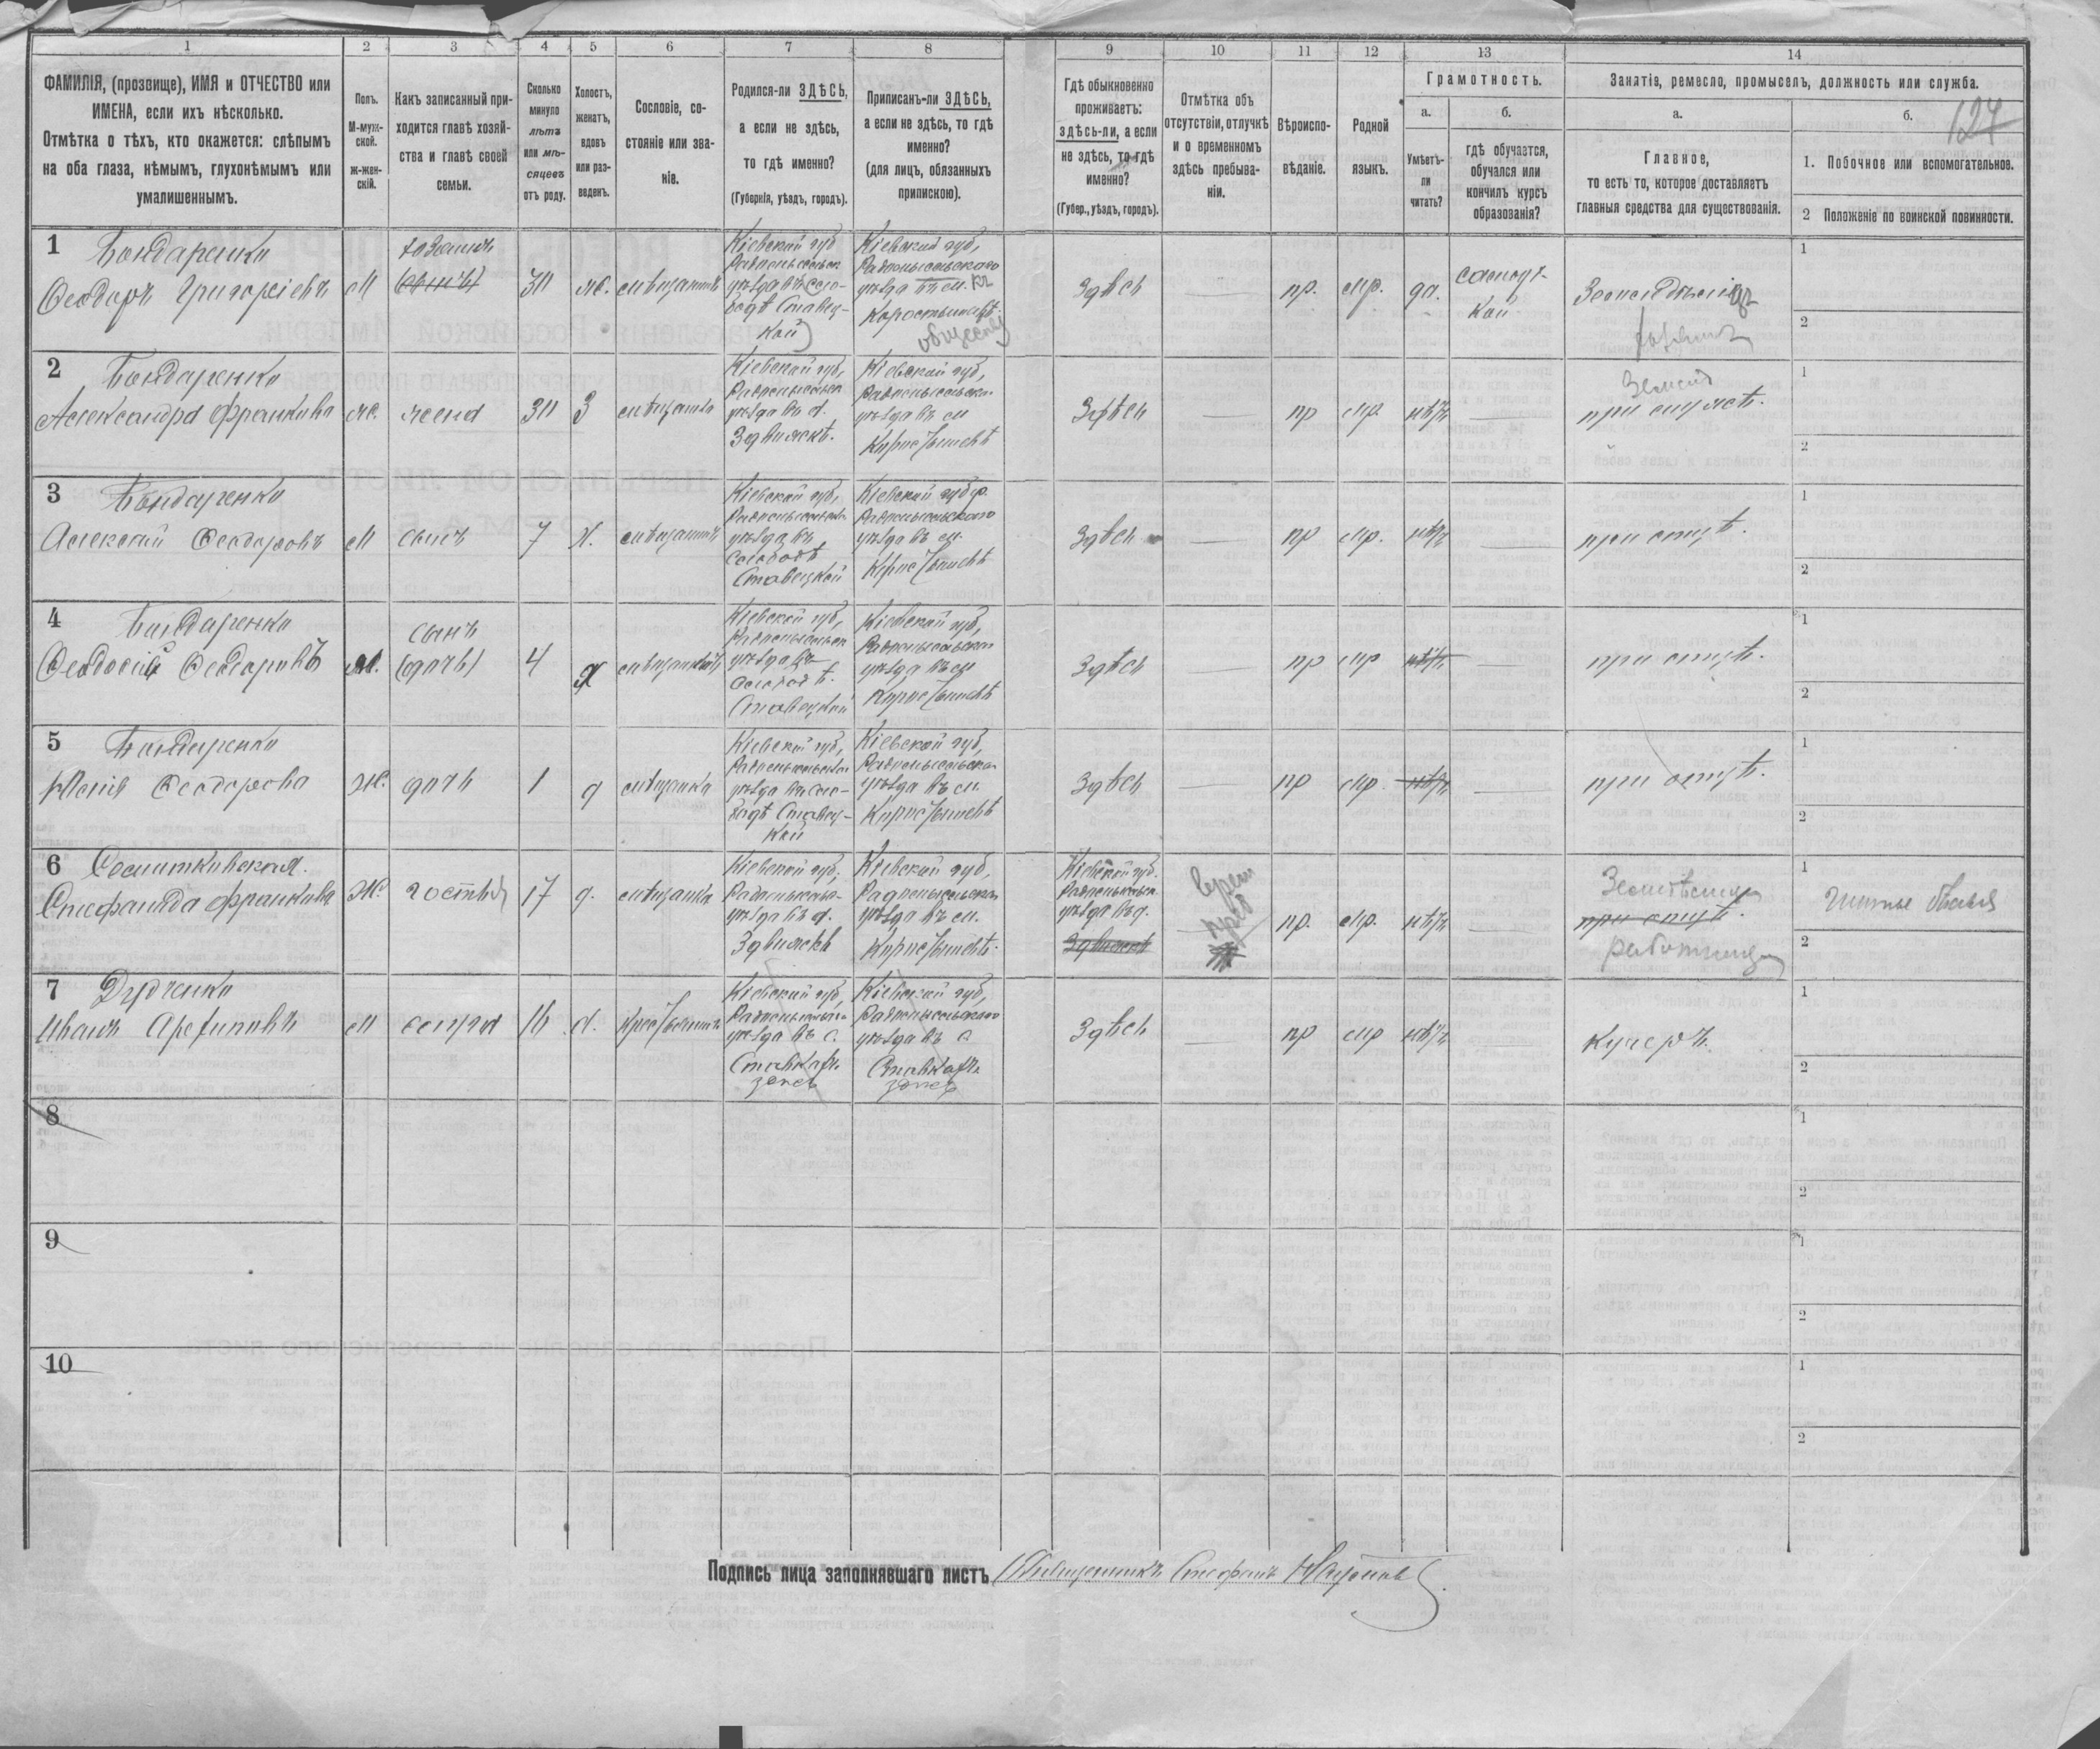 1 2 3 4 5 6 7 8 9 10 11 12 13 14
ФАМИЛІЯ, (прозвище), ИМЯ и ОТЧЕСТВО или
ИМЕНА, если ихъ нѣсколько.
Отмѣтка о тѣхъ, кто окажется: слѣпымъ
на оба глаза, нѣмымъ, глухонѣмымъ или
умалишеннымъ.
Полъ.
М-муж-
ской.
ж-жен-
скій.
Какъ записанный при-
ходится главѣ хозяй-
ства и главѣ своей
семьи.
Сколько
минуло
лѣтъ
или мѣ-
сяцевъ
отъ роду.
Холостъ,
женатъ,
вдовъ
или раз-
веденъ.
Сословіе, со-
стояніе или зва-
ніе.
Родился-ли ЗДѢСЬ,
а если не здѣсь,
то гдѣ именно?
(Губернія, уѣздъ, городъ).
Приписанъ-ли ЗДѢСЬ,
а если не здѣсь, то гдѣ
именно?
(для лицъ, обязанныхъ
припискою).
Гдѣ обыкновенно
проживаетъ:
здѣсь-ли, а если
не здѣсь, то гдѣ
именно?
(Губер., уѣздъ, городъ).
Отмѣтка объ
отсутствіи, отлучкѣ
и о временномъ
здѣсь пребыва-
ніи.
Вѣроиспо-
вѣданіе.
Родной
языкъ.
Грамотность.
а.
Умѣетъ-
ли
читать?
б.
гдѣ обучается,
обучался или
кончилъ курсъ
образованія?
Занятія, ремесло, промыселъ, должность или служба.
а.
Главное,
то есть то, которое доставляетъ
главныя средства для существованія.
б.
124
1. Побочное или вспомогательное.
2 Положеніе по воинской повинности.
1 Бондаренко
Ѳеодоръ Григоріевъ
М
хозяинъ
30
ж.
мѣщанинъ
Кіевской губ
Радомысльск
уѣзда въ сло-
бодѣ Ставец-
кой
Кіевской губ,
Радомысльскаго
уѣзда въ м. къ
Коростышев.
обществу
Здѣсь
пр.
мр.
да.
самоуч-
кой
Земледѣліе
хозяинъ
1
2
2 Бондаренко
Александра Франкова
ж.
жена
30
З
мѣщанка
Кіевской губ,
Радомысльск
уѣзда въ д.
Здвижкѣ.
Кіевской губ,
Радомысльска
уѣзда въ м
Коростышевѣ
Здѣсь
пр
мр.
нѣтъ
при мужѣ.
1
2
3 Бондаренко
Алексѣй Ѳеодоровъ
М
сынъ
7
Х.
мѣщанинъ
Кіевской губ,
Радомысльска
уѣзда въ
слободѣ
Ставецкой
Кіевской губер.
Радомысльскаго
уѣзда въ м.
Коростышевѣ
Здѣсь
пр
мр.
нѣтъ
при отцѣ.
1
2
4 Бондаренко
Ѳеодосій Ѳеодоровъ
М.
сынъ
(дочь)
4
Кіевской губ,
Радомысльск
уѣзда въ
слободѣ.
Ставецкой
Кіевской губ,
Радомысльска
уѣзда въ м
Коростышевѣ
Здѣсь
пр
мр
нѣтъ
при отцѣ.
1
2
5 Бондаренко
Юлія Ѳеодорова
Ж.
дочь
1
д
мѣщанка
Кіевской губ,
Радомысльска
уѣзда въ сло-
бодѣ Ставец-
кой
Кіевской губ,
Радомысльска
уѣзда въ м.
Коростышевѣ
Здѣсь
пр
мр
нѣтъ
при отцѣ.
1
2
6
Стефанида Франкова
Ж.
гостья
17
д.
мѣщанка
Кіевской губ.
Радомысльск
уѣзда въ д.
Здвижкѣ
Кіевской губ,
Радомысльска
уѣзда въ м.
Коростышевѣ.
Кіевской губ.
Радомысльск
уѣзда въ д.
Здвижкѣ
врем
преб
пр.
мр.
нѣтъ
при отцѣ.
работница
1
Шитье бѣлья
2
7 Дудченко
Иванъ Арефіевъ
М
слуга
16
Х.
крестьянинъ
Кіевской губ,
Радомысльск
уѣзда въ с.
Ставкахъ
здесь
Кіевской губ,
Радомысльскаго
уѣзда въ с
Ставкахъ
здесь
Здѣсь
пр
мр
нѣтъ
кучеръ.
1
2
8
1
2
9
1
2
10
1
2
Подпись лица заполнявшаго листъ Священникъ Стефанъ